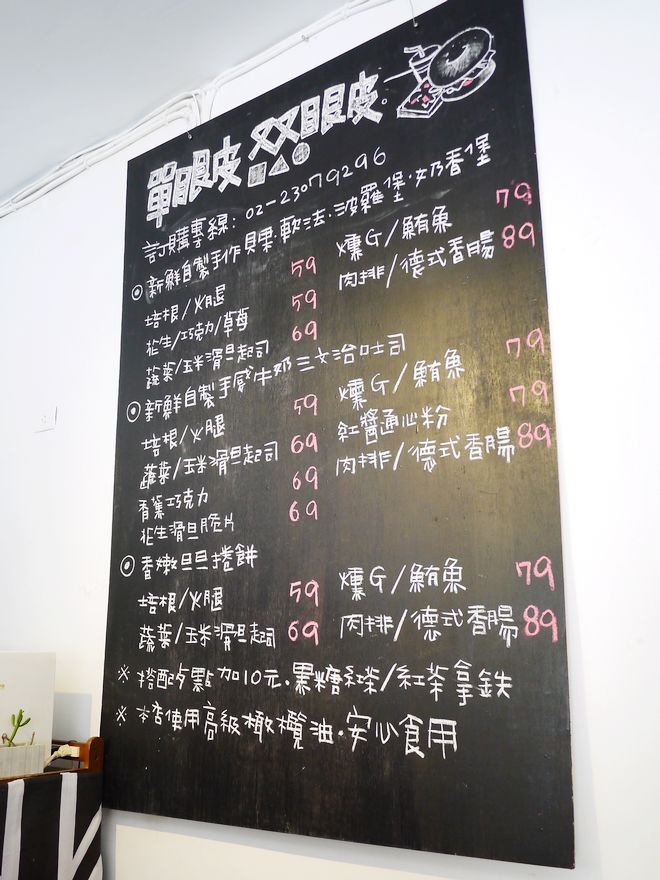 單眼皮 双眼皮
訂購專線: 02-23079296
新鮮自製手作貝果·軟法·波羅堡·奶香堡
培根/火腿 59 燻G/鮪魚 79
花生/巧克力/草莓 59 肉排/德式香腸 89
蔬菜/玉米滑旦起司 69
新鮮自製手感牛奶三文治吐司
培根/火腿 59 燻G/鮪魚 79
蔬菜/玉米滑旦起司 69 紅醬通心粉 79
香蕉巧克力 69 肉排/德式香腸 89
花生滑旦脆片 69
香嫩旦旦捲餅
培根/火腿 59 燻G/鮪魚 79
蔬菜/玉米滑旦起司 69 肉排/德式香腸 89
※ 搭配点點加10元·黑糖紅茶/紅茶拿鉄
※ 本店使用高級橄欖油·安心食用